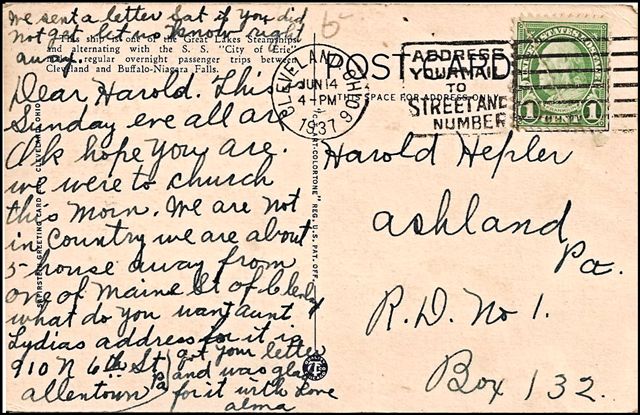 we sent a letter Sat if you did
not get let us know right
away.
This ship is one of the Great Lakes Steamships
and alternating with the S. S. "City of Erie"
regular overnight passenger trips between
Cleveland and Buffalo-Niagara Falls.
Dear Harold. This
Sunday eve all are
O.k hope you are.
we were to church
this morn. We are not
in Country we are about
5 house away from
one of Maine St of Clevland
what do you want aunt
Lydias address for it is
910 N 6th St
allentown Pa
got your letter
and was glad
for it with Love
alma
POST CARD
THIS SPACE FOR ADDRESS ONLY
CLEVELAND, OHIO
JUN 14
4-PM
1937
ADDRESS
YOUR MAIL
TO
STREET AND
NUMBER
UNITED STATES POSTAGE
1 CENT 1
Harold Hepler
Ashland
Pa.
R.D. No 1.
Box 132.
SAPIRSTEIN GREETING CARD CO., CLEVELAND, OHIO
ART-COLORTONE" REG. U.S. PAT. OFF.